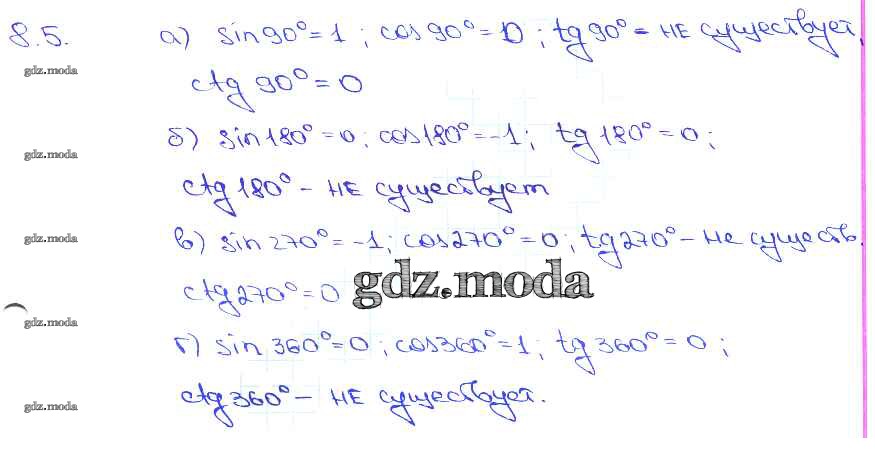 8.5. а) sin 90° = 1 ; cos 90° = 0 ; tg 90° – не существует,
gdz.moda
ctg 90° = 0
б) sin 180° = 0; cos 180° = -1; tg 180° = 0;
gdz.moda
ctg 180° – не существует
в) sin 270° = -1; cos 270° = 0; tg 270° – не существ.
gdz.moda
ctg 270° = 0
gdz.moda
gdz.moda
г) sin 360° = 0; cos 360° = 1; tg 360° = 0;
ctg 360° – не существует.
gdz.moda